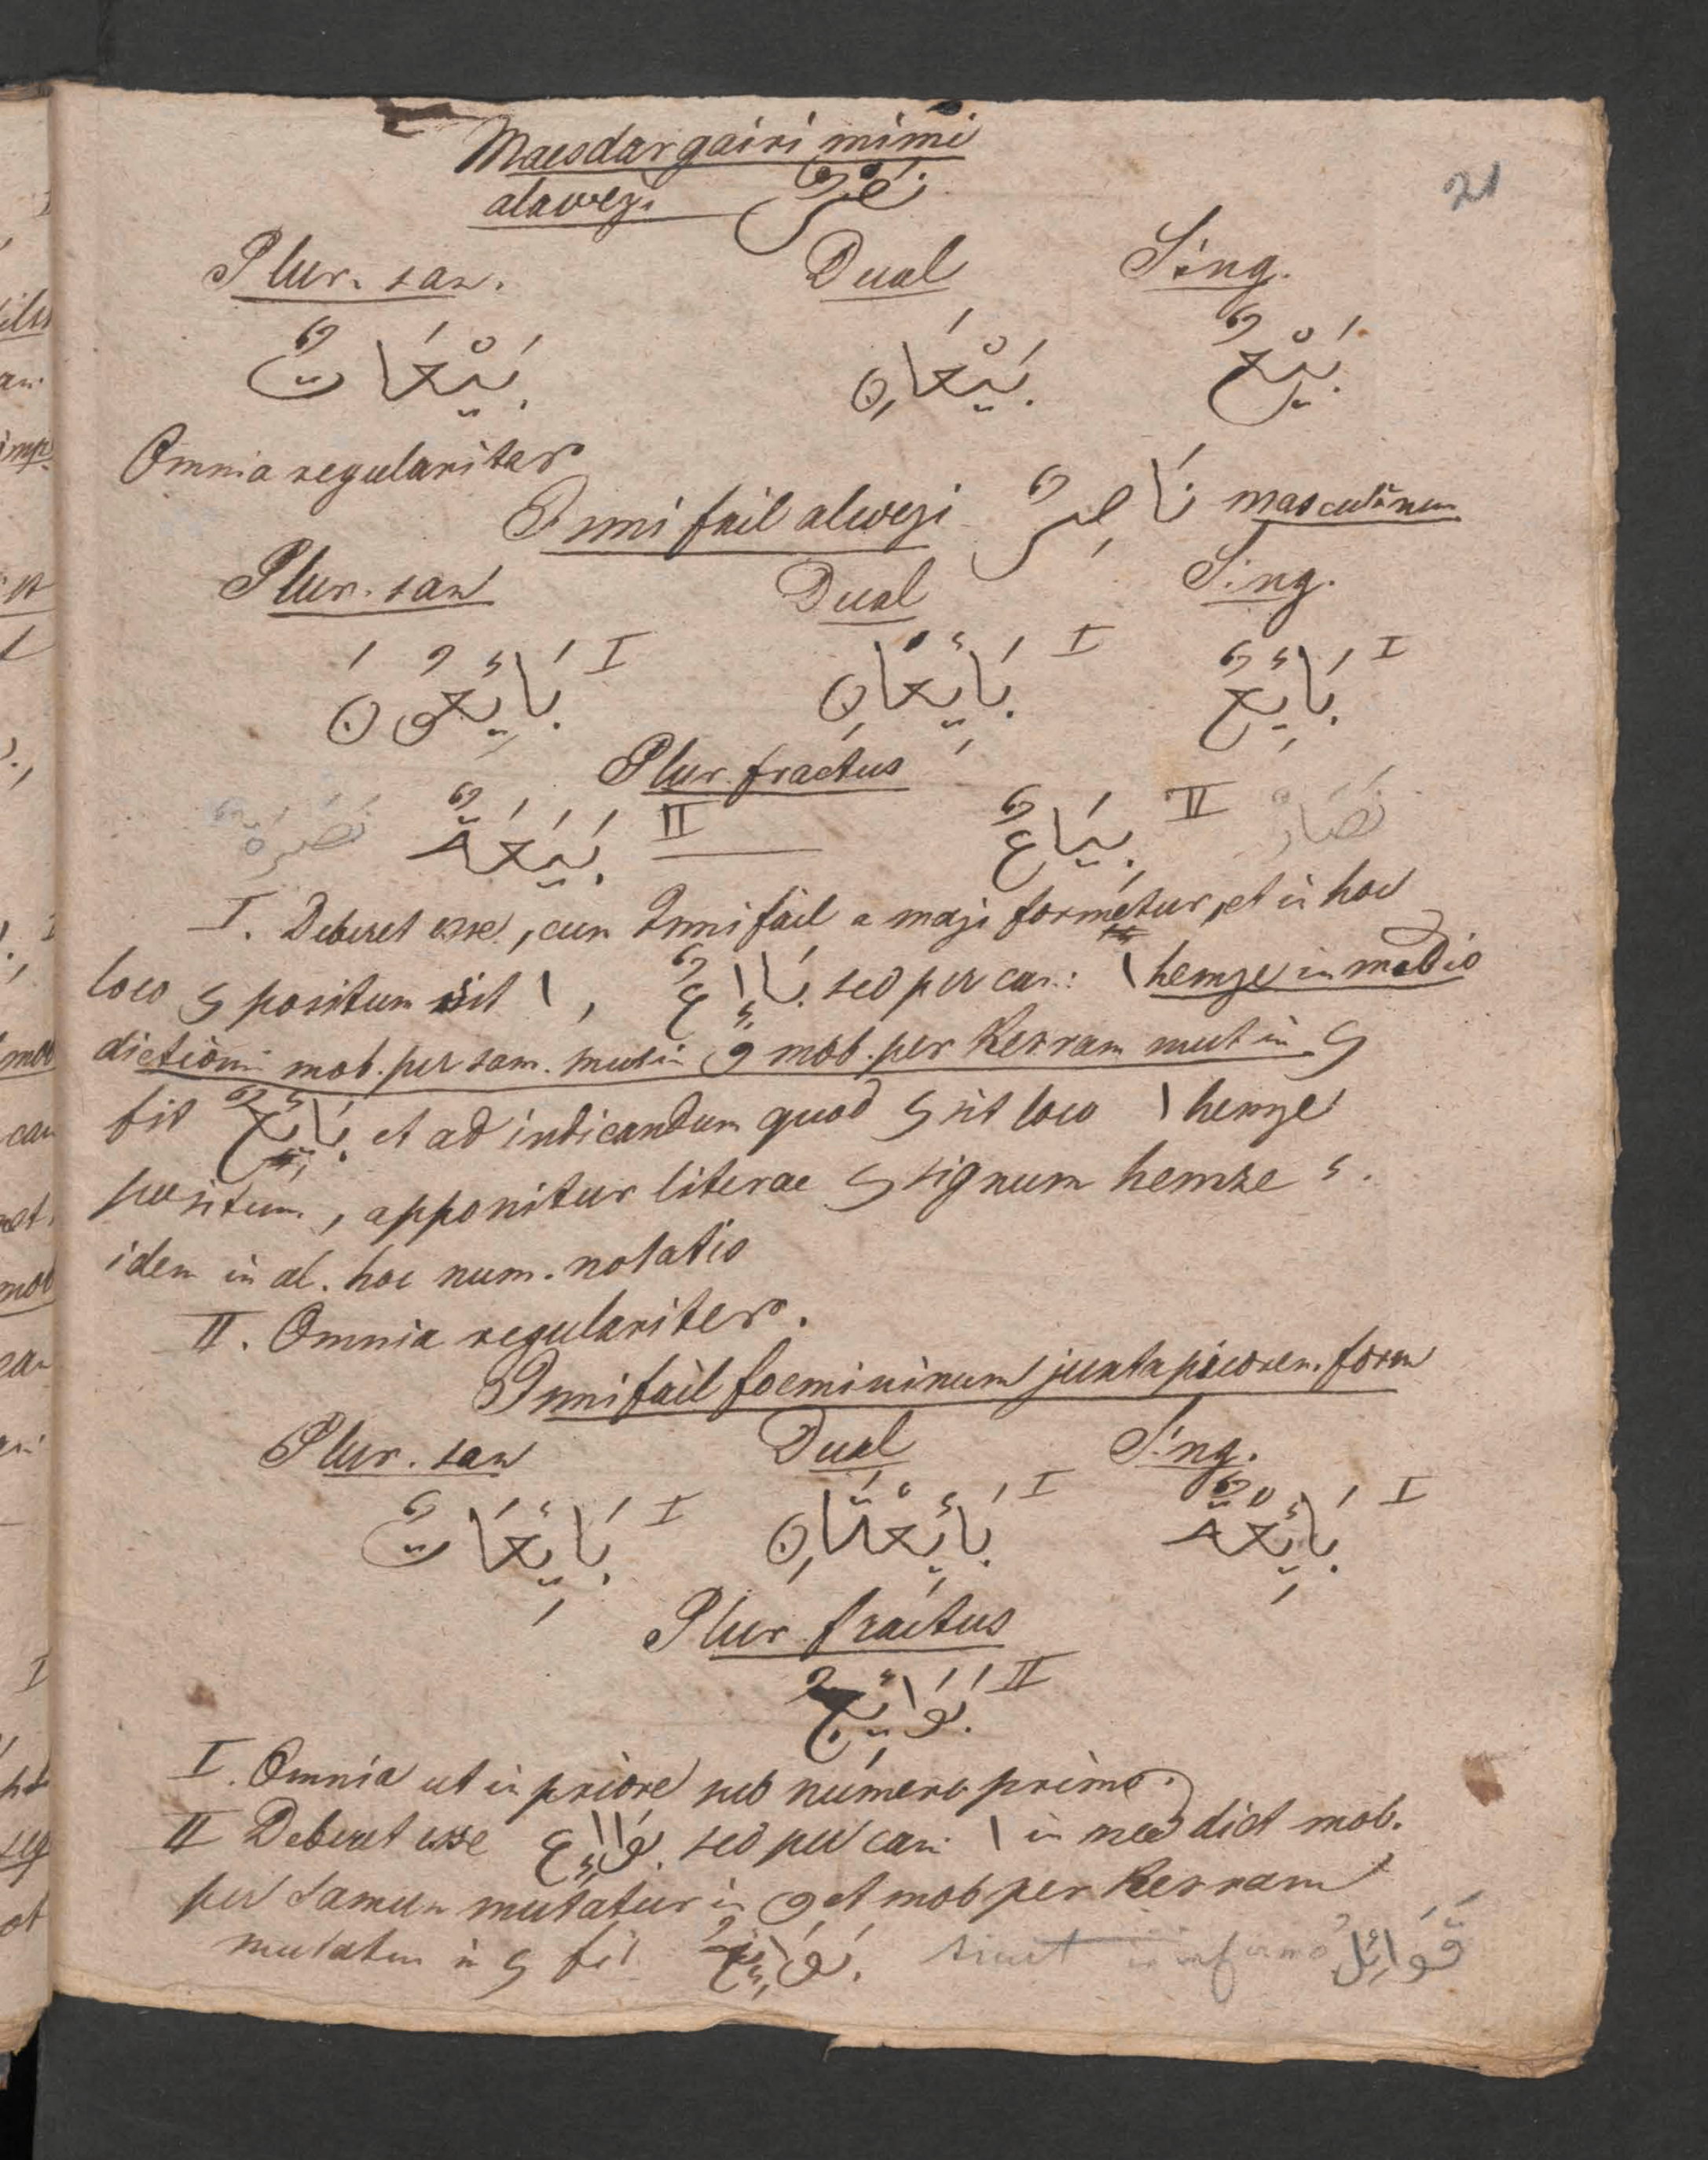 21
Maesdar gairi mimi
alawezi نَصْرٌ
Plur. san. Dual Sing.
بَيْعَاتٌ بَيْعَانِ بَيْعٌ
Omnia regulariter
Ismi fail alwezi نَاصِرٌ masculinum
Plur. san Dual Sing.
I بَائِعُونَ I بَائِعَانِ I بَائِعٌ
Plur. fractus
نَصَرَةٌ بَيَعَةٌ II بِيَاعٌ II نصَارٌ
I. Deberet esse, cum Ismi fail a mazi formetur, et in hoc
loco ء positum sit ا, بَااِعٌ sed per can: ا hemze in medio
dictioni mob. per sam. mut in و mob. per Kesram mut in ي
fit بَائِعٌ et ad indicandum quod ي sit loco ا hemze
positum, apponitur literae ي signum hemze ء.
idem in al. hoc num. notatis
II. Omnia regulariter.
Ismi fail foemininum juxta priorem. form
Plur. san Dual Sing.
I بَائِعَاتٌ I بَائِعَتَانِ I بَائِعَةٌ
Plur. fractus
II بَوَائِعُ
I. Omnia ut in priore sub numero primo.
II Deberet esse بَوَااِع sed per can: ا in med dict mob.
per samum mutatur in و et mob per Kesram
mutatum in ي fit بَوَائِعُ sicut in infirmo قَوَائِلُ